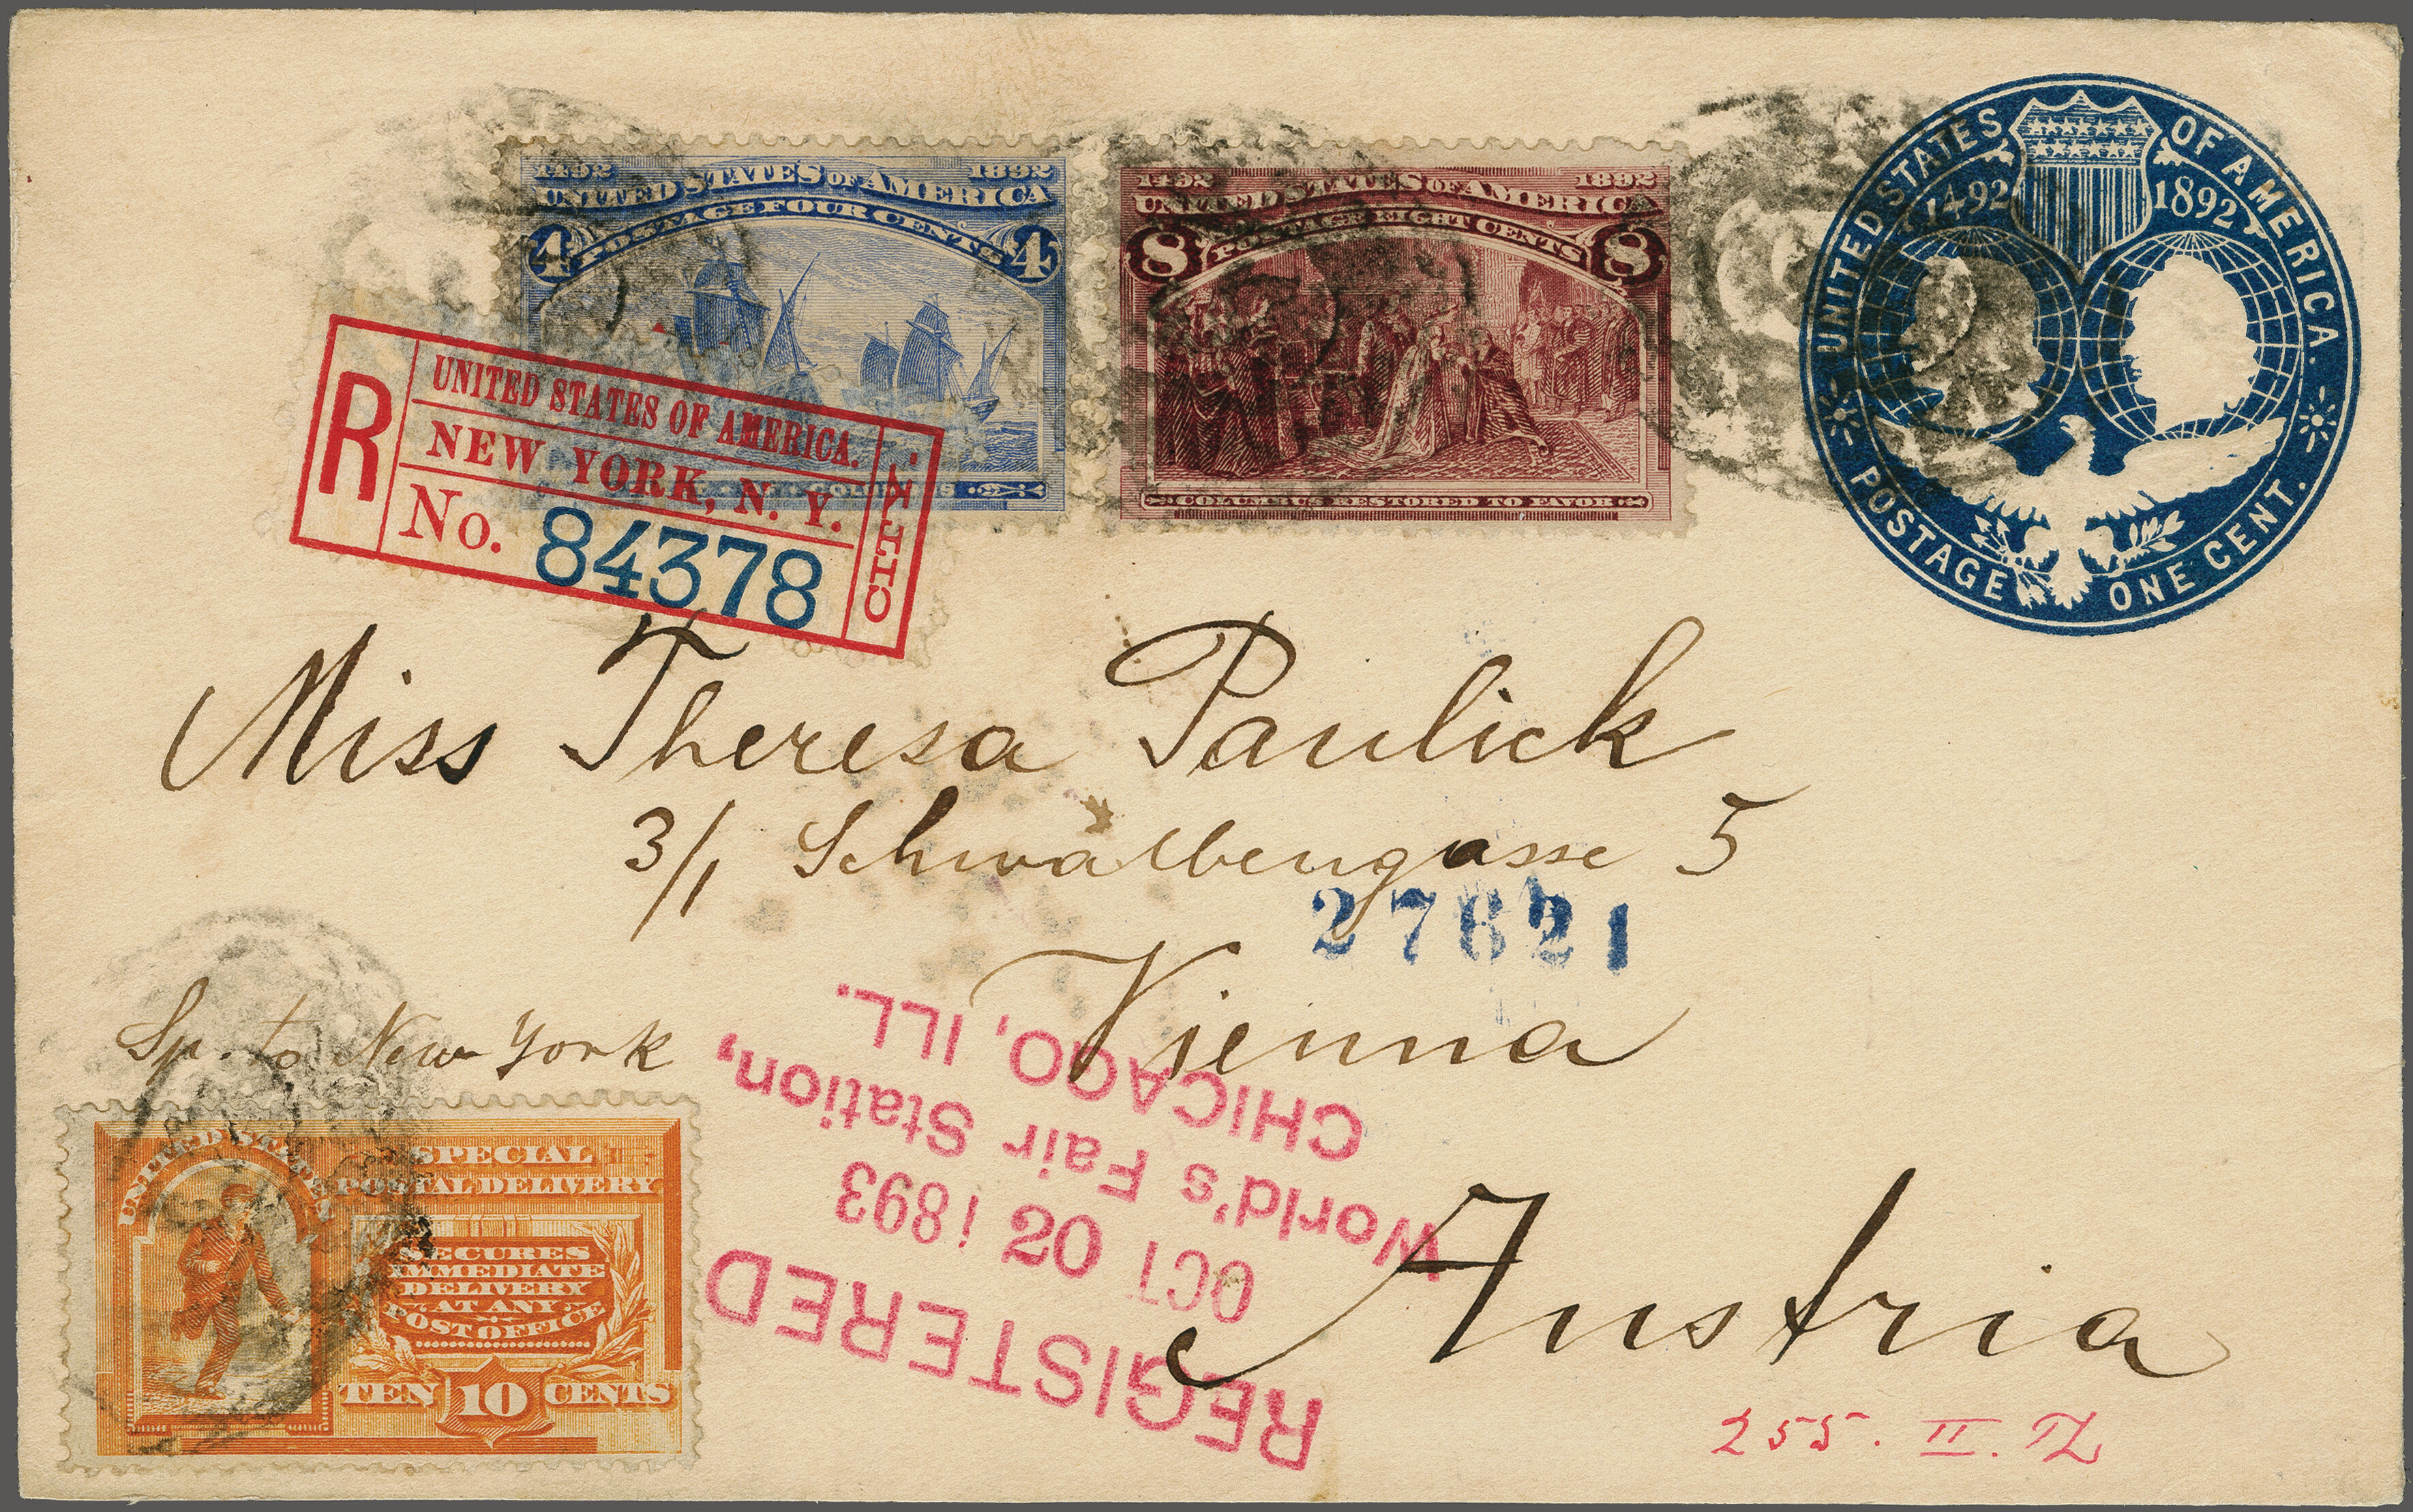 1492 1892
UNITED STATES OF AMERICA
POSTAGE FOUR CENTS
4 4
1492 1892
UNITED STATES OF AMERICA
POSTAGE EIGHT CENTS
8 8
COLUMBUS RESTORED TO FAVOR
UNITED STATES OF AMERICA.
1492 1892
POSTAGE ONE CENT.
R
UNITED STATES OF AMERICA.
NEW YORK, N. Y.
No. 84378
CITY.
Miss Theresa Paulick
3/1 Schwalbengasse 5
27621
Vienna
Sp. to New York
Austria
REGISTERED
OCT 02 1893
World's Fair Station,
CHICAGO, ILL.
UNITED STATES
SPECIAL
POSTAL DELIVERY
SECURES
IMMEDIATE
DELIVERY
AT ANY
POST OFFICE
TEN 10 CENTS
255. II.